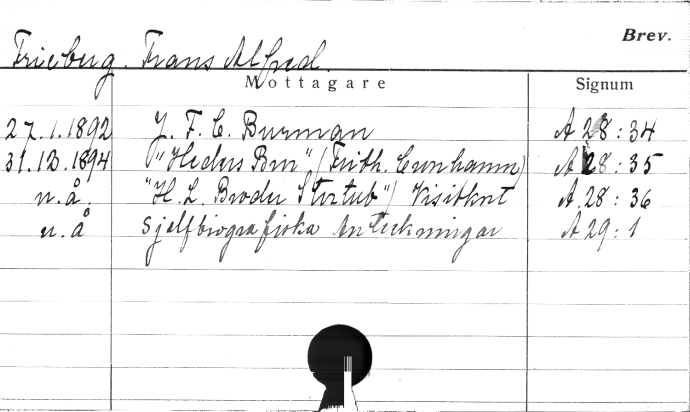 Brev.
Frieberg. Frans Alfred.
Mottagare Signum
27.1.1892 J. F. C. Burman A 28:34
31.12.1894 "Heders Bror" (Frith. Cunhamn) A 28:35
n.å. "H. L. Broder" / Visitkort A.28:36
n.å Sjelfbiografiska Anteckningar A 29:1